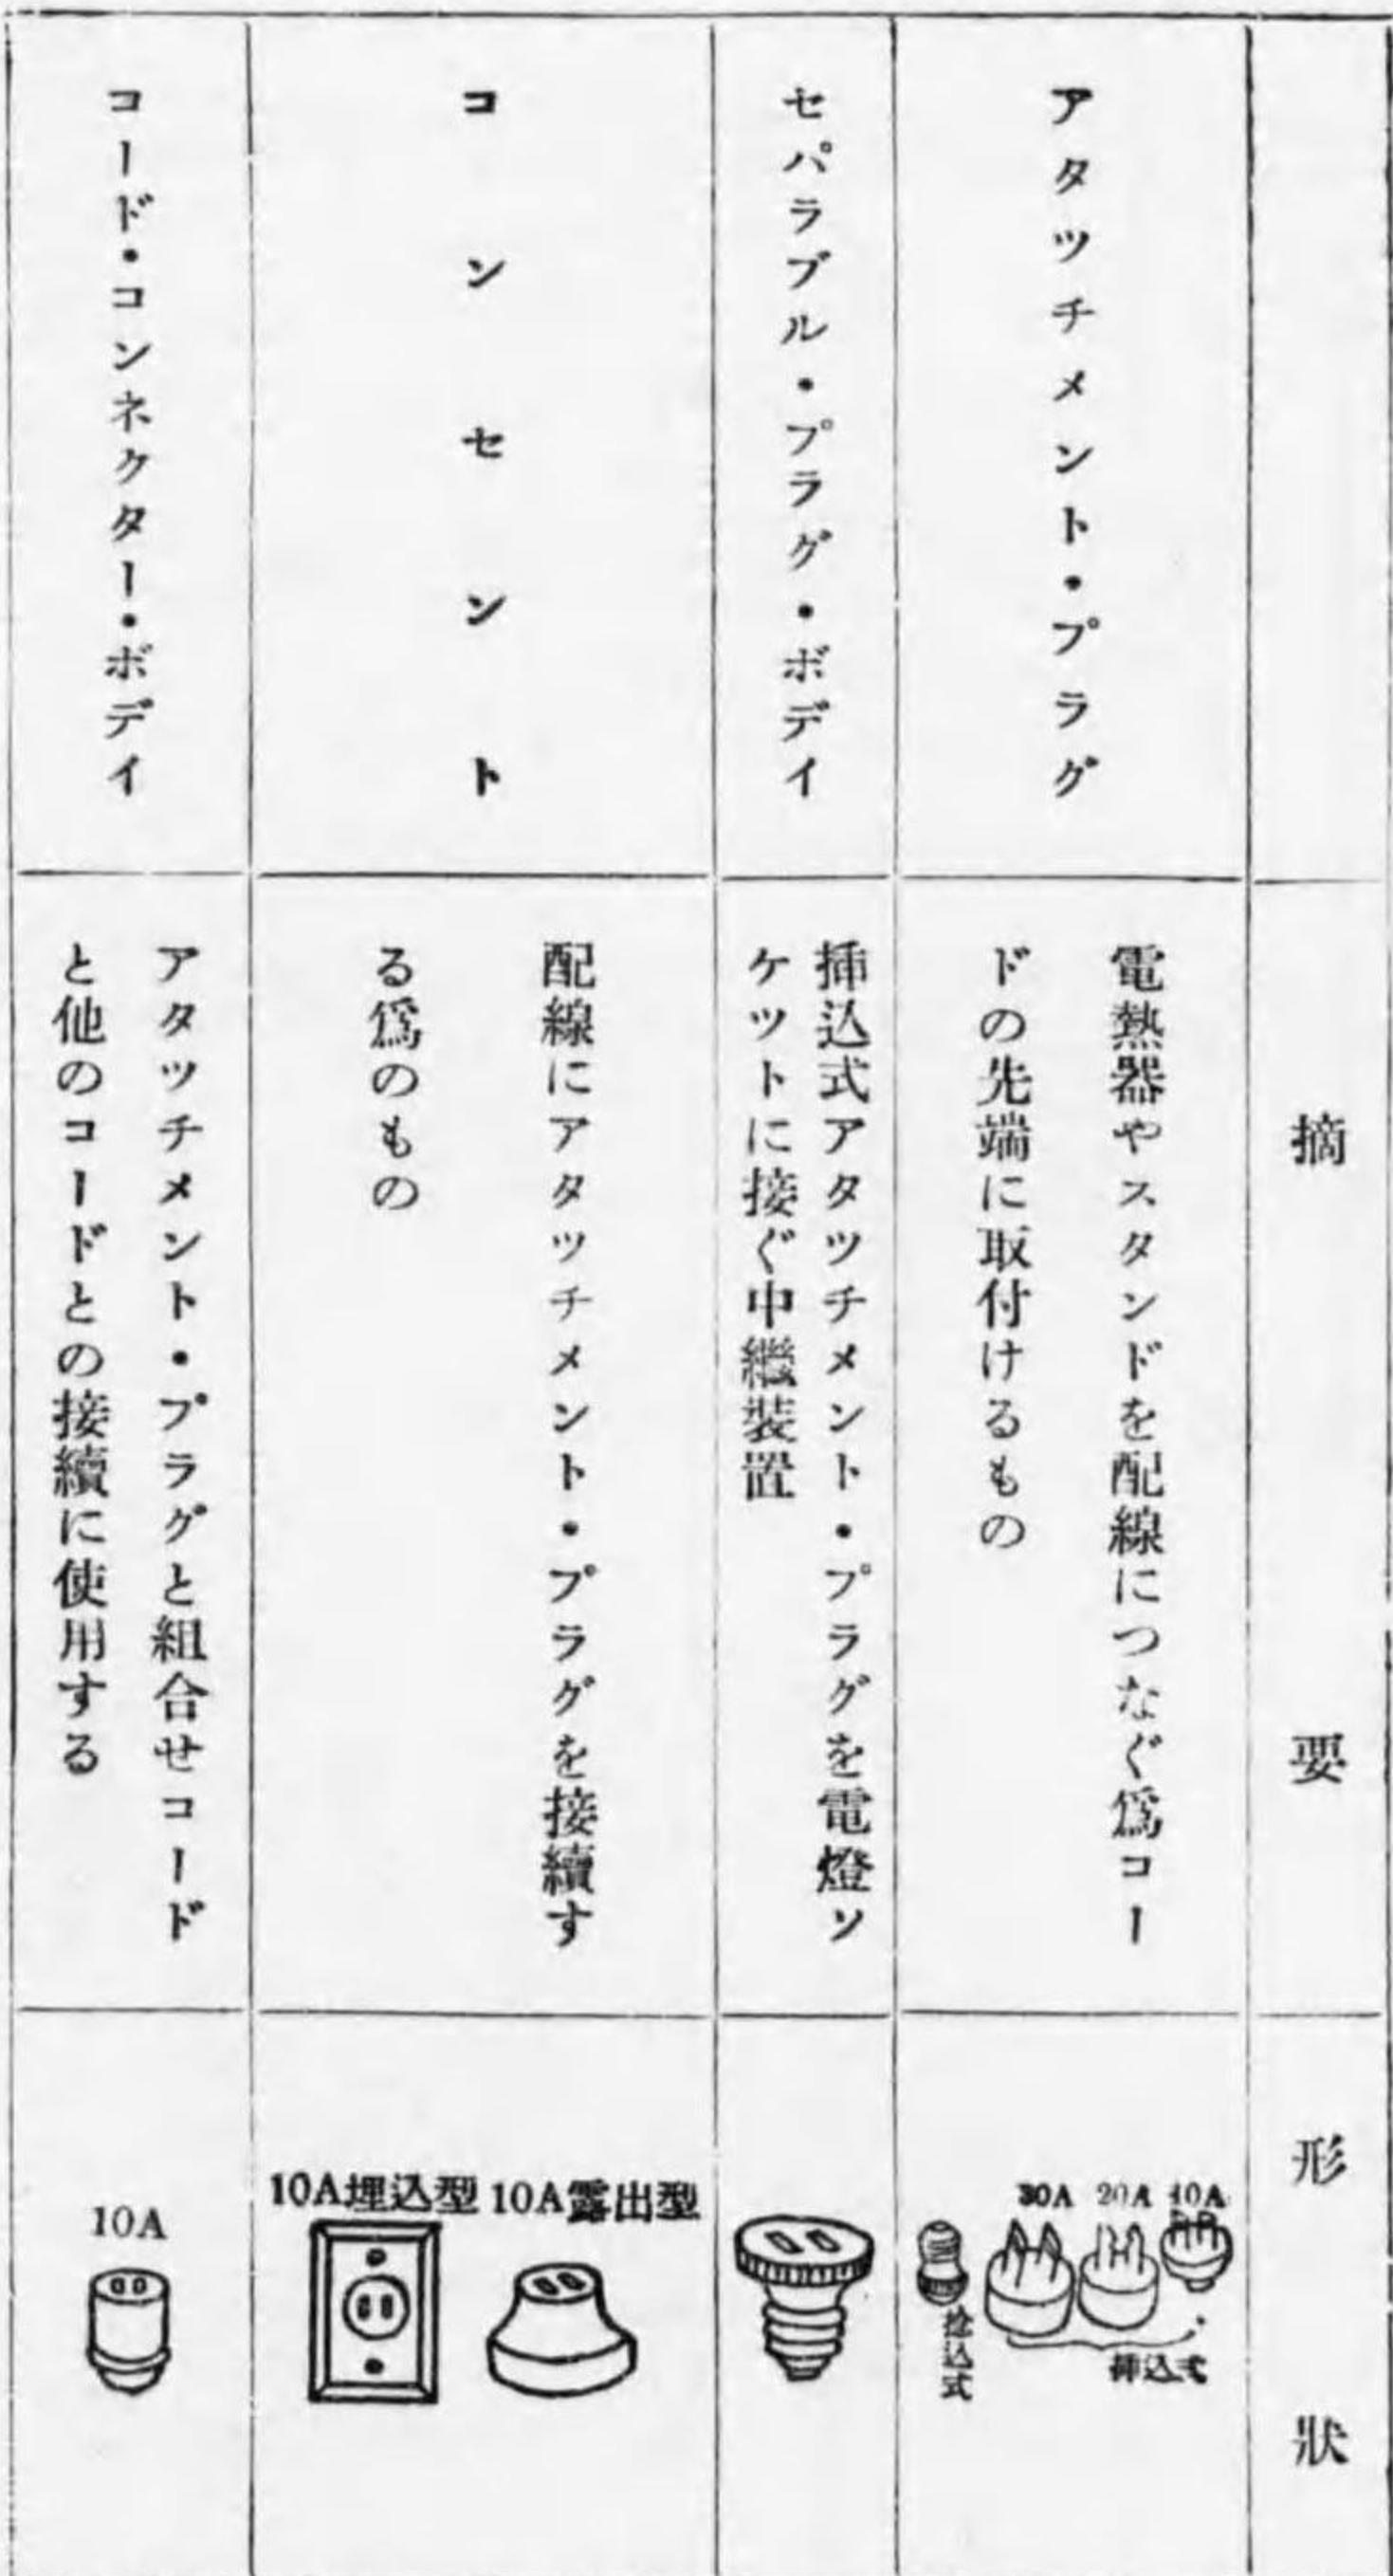 摘要
形狀
アタツチメント・プラグ
電熱器やスタンドを配線につなぐ爲コー
ドの先端に取付けるもの
10A
20A
30A
挿込式
捻込式
セパラブル・プラグ・ボデイ
挿込式アタツチメント・プラグを電燈ソ
ケツトに接ぐ中繼装置
コンセント
配線にアタツチメント・プラグを接續す
る爲のもの
10A露出型
10A埋込型
コード・コンネクター・ボデイ
アタツチメント・プラグと組合せコード
と他のコードとの接續に使用する
10A